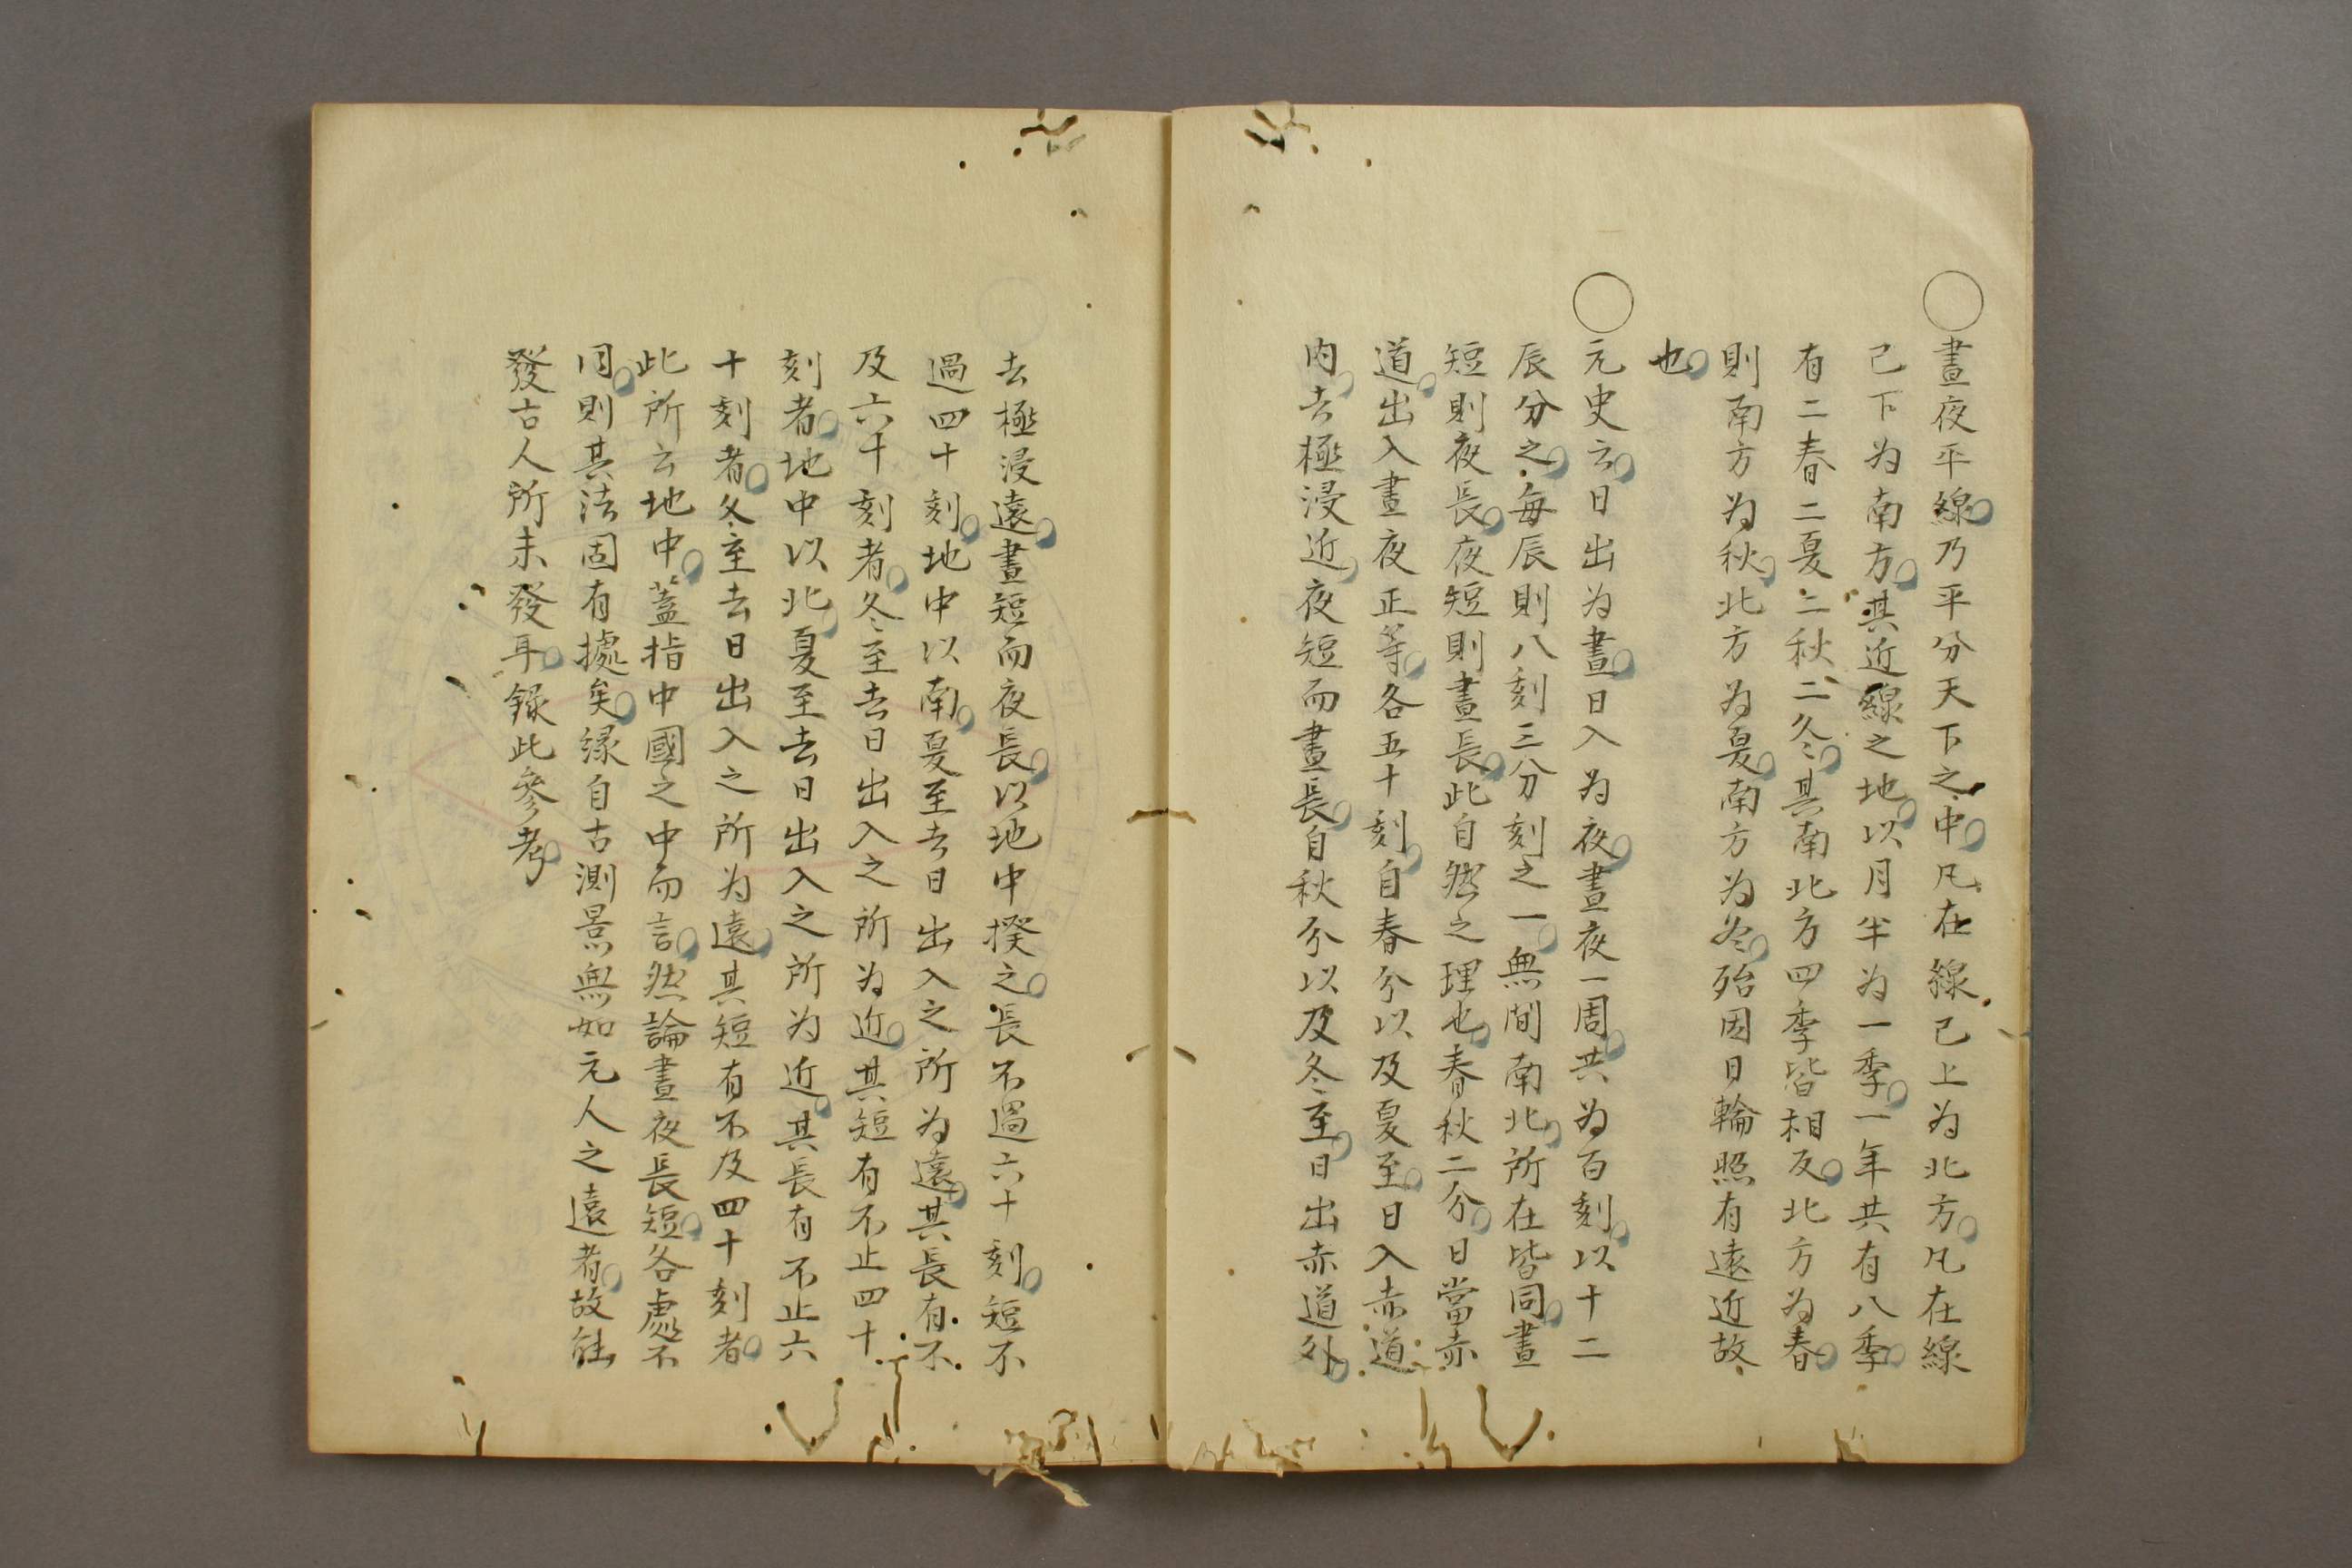 〇晝夜平線乃平分天下之中凡在線已上为北方凡在線
已下为南方其近線之地以月半为一季一年共有八季
有二春二夏二秋二冬其南北方四季皆相反北方为春
則南方为秋北方为夏南方为冬殆因日輪照有遠近故
也
〇元史云日出为晝日入为夜晝夜一周共为百刻以十二
辰分之每辰則八刻三分刻之一無間南北所在皆同晝
短則夜長夜短則晝長此自然之理也春秋二分日當赤
道出入晝夜正等各五十刻自春分以及夏至日入赤道
内去極浸近夜短而晝長自秋分以及冬至日出赤道外
去極浸遠晝短而夜長以地中揆之長不過六十刻短不
過四十刻地中以南夏至去日出入之所为遠其長有不
及六十刻者冬至去日出入之所为近其短有不止四十
刻者地中以北夏至去日出入之所为近其長有不止六
十刻者冬至去日出入之所为遠其短有不及四十刻者
此所云地中蓋指中國之中而言然論晝夜長短各處不
同則其法固有據矣緣自古測景無如元人之遠者故能
發古人所未發耳錄此參考